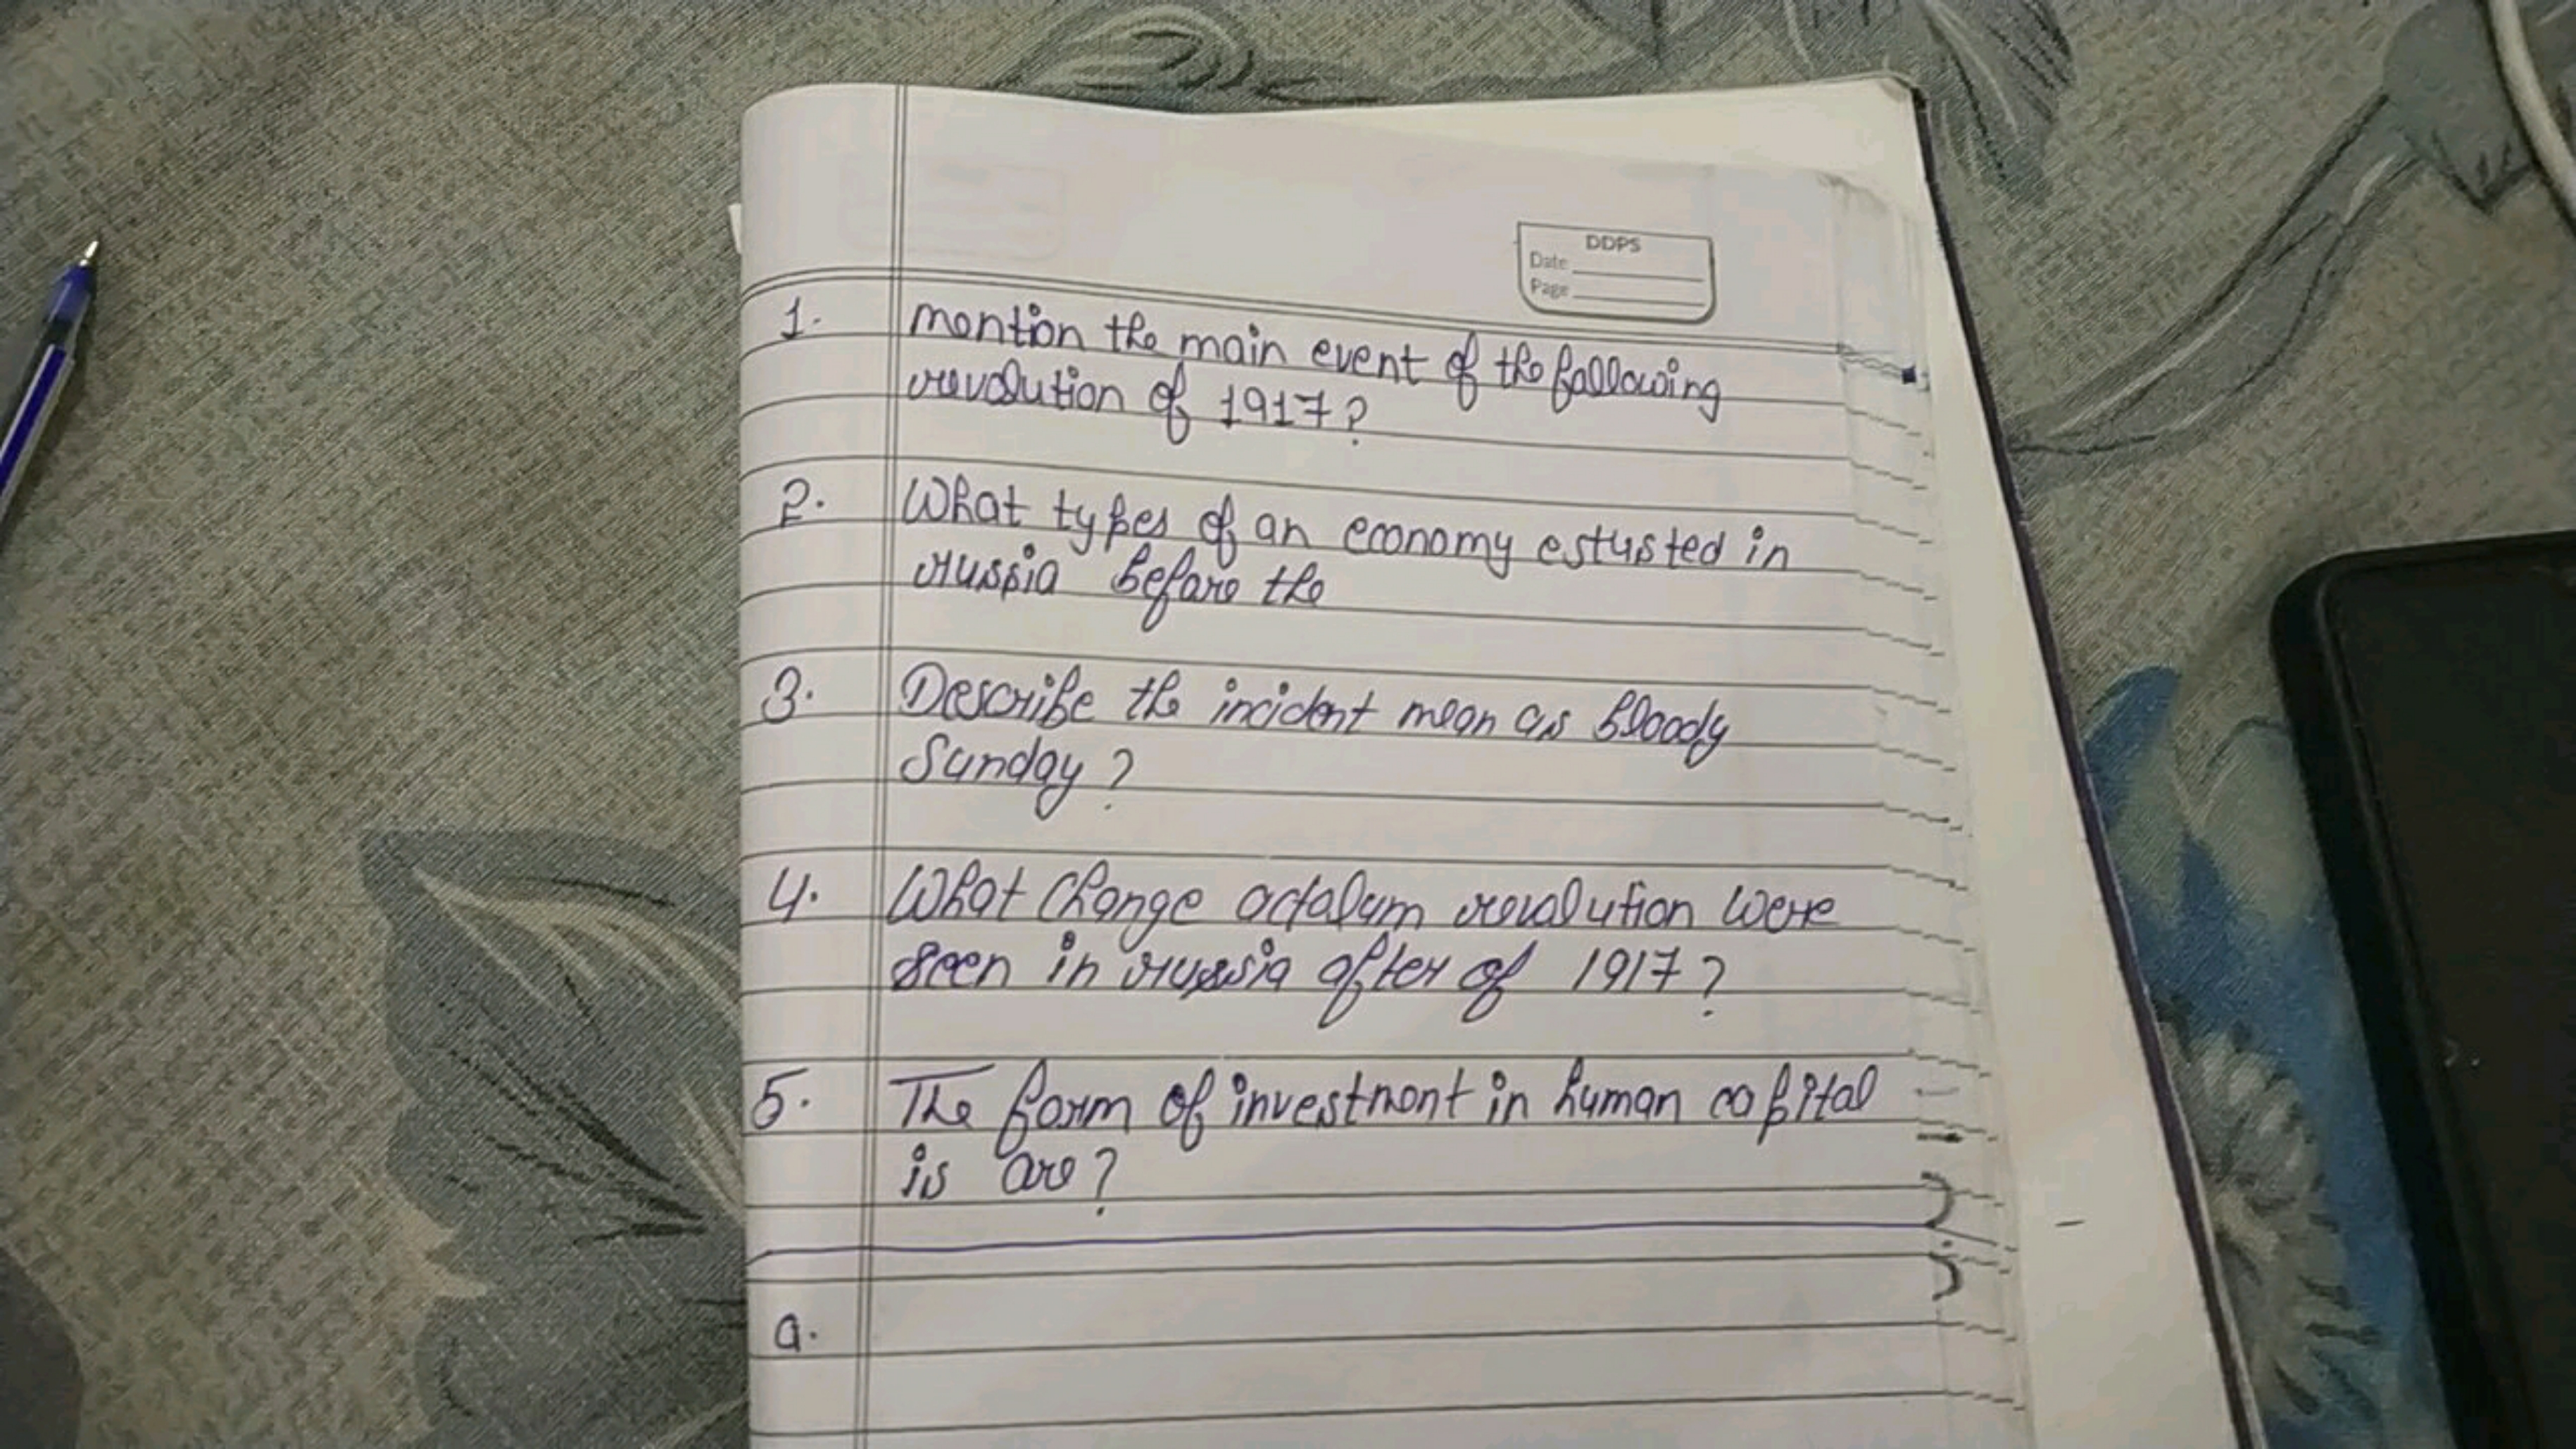 DDPS
Date
Page
1. mention the main event of the following
revolution of 1917?
2. What types of an economy estusted in
russia before the
3. Describe the incident mean as bloody
Sunday?
4. What change octalum revolution were
seen in russia after of 1917?
5. The form of investment in human capital
is are?
a.